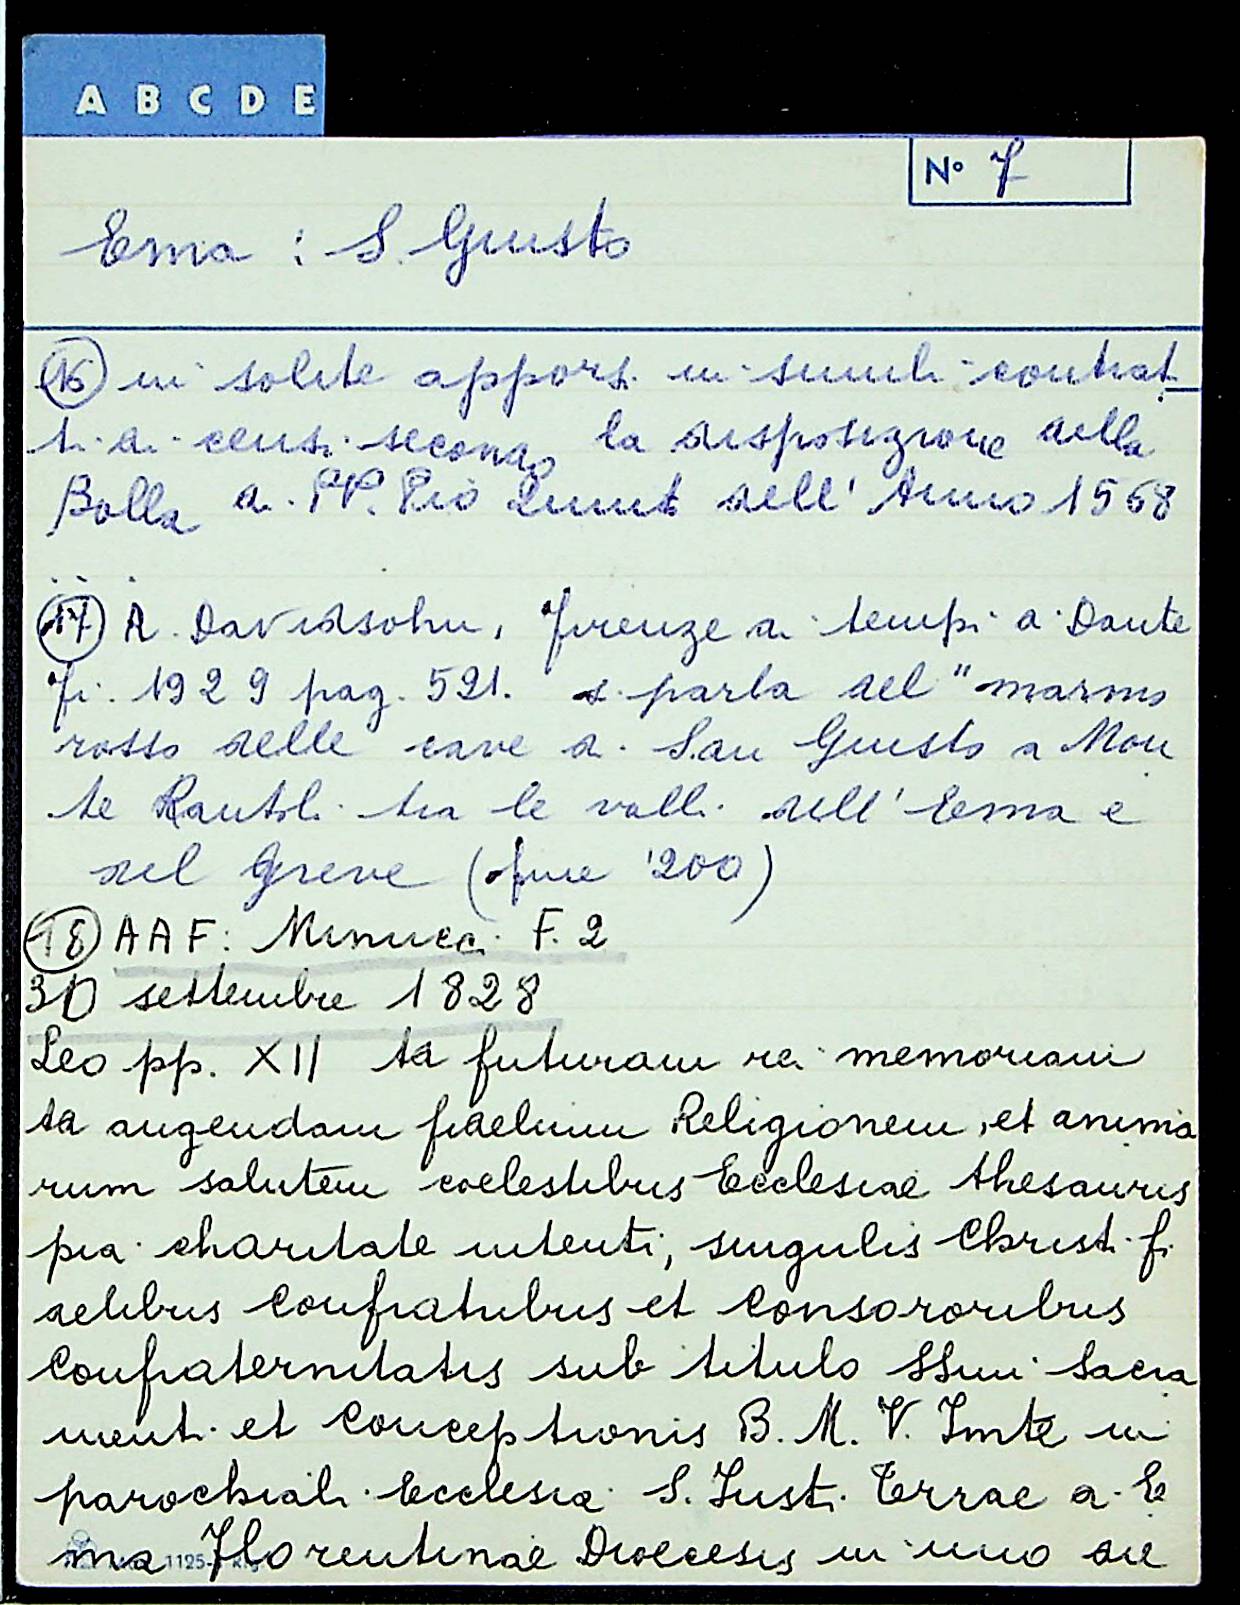 A B C D E
N° 7
Ema : S. Giusto
(16) ni solite apporsi in simili contrat
ti di censi secondo la disposizione della
Bolla di PP. Pio Quinto dell' Anno 1568
(17) R. Davidsohn, Firenze ai tempi di Dante
Fi. 1929 pag. 521. si parla del "marmo
rosso delle cave di San Giusto a Mon
te Rantoli tra le valli dell' Ema e
del Greve (fine '200)
(18) AAF: Minucci F. 2
30 settembre 1828
Leo pp. XII ad futuram rei memoriam
ad augendam fidelium Religionem, et anima
rum salutem coelestibus Ecclesiae thesauris
pia charitate intenti, singulis Christi fi
delibus Confratribus et Consororibus
Confraternitatis sub titulo SSmi Sacra
menti et Conceptionis B. M. V. Imtae in
parochiali Ecclesia S. Justi Terrae a E
ma Florentinae Dioecesis in uno die
1125-